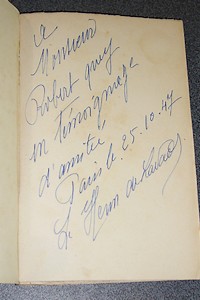 à
Monsieur
Robert
en témoignage
d'amitié,
Paris le 25.10.47